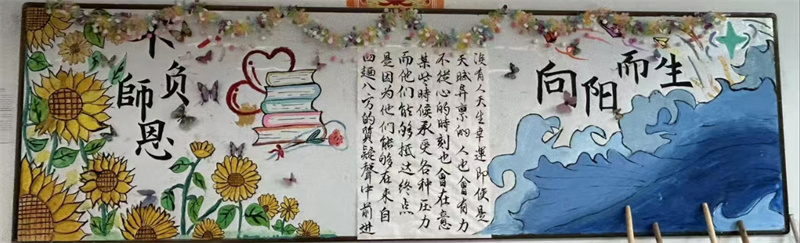 不负
師恩
沒有人天生幸運即使是
天賦异禀的人也會有力
不從心的時刻也會在意
某些時候承受各种压力
而他们能够抵达终点
是因为他们能够在来自
四面八方的質疑聲中前进
向阳而生